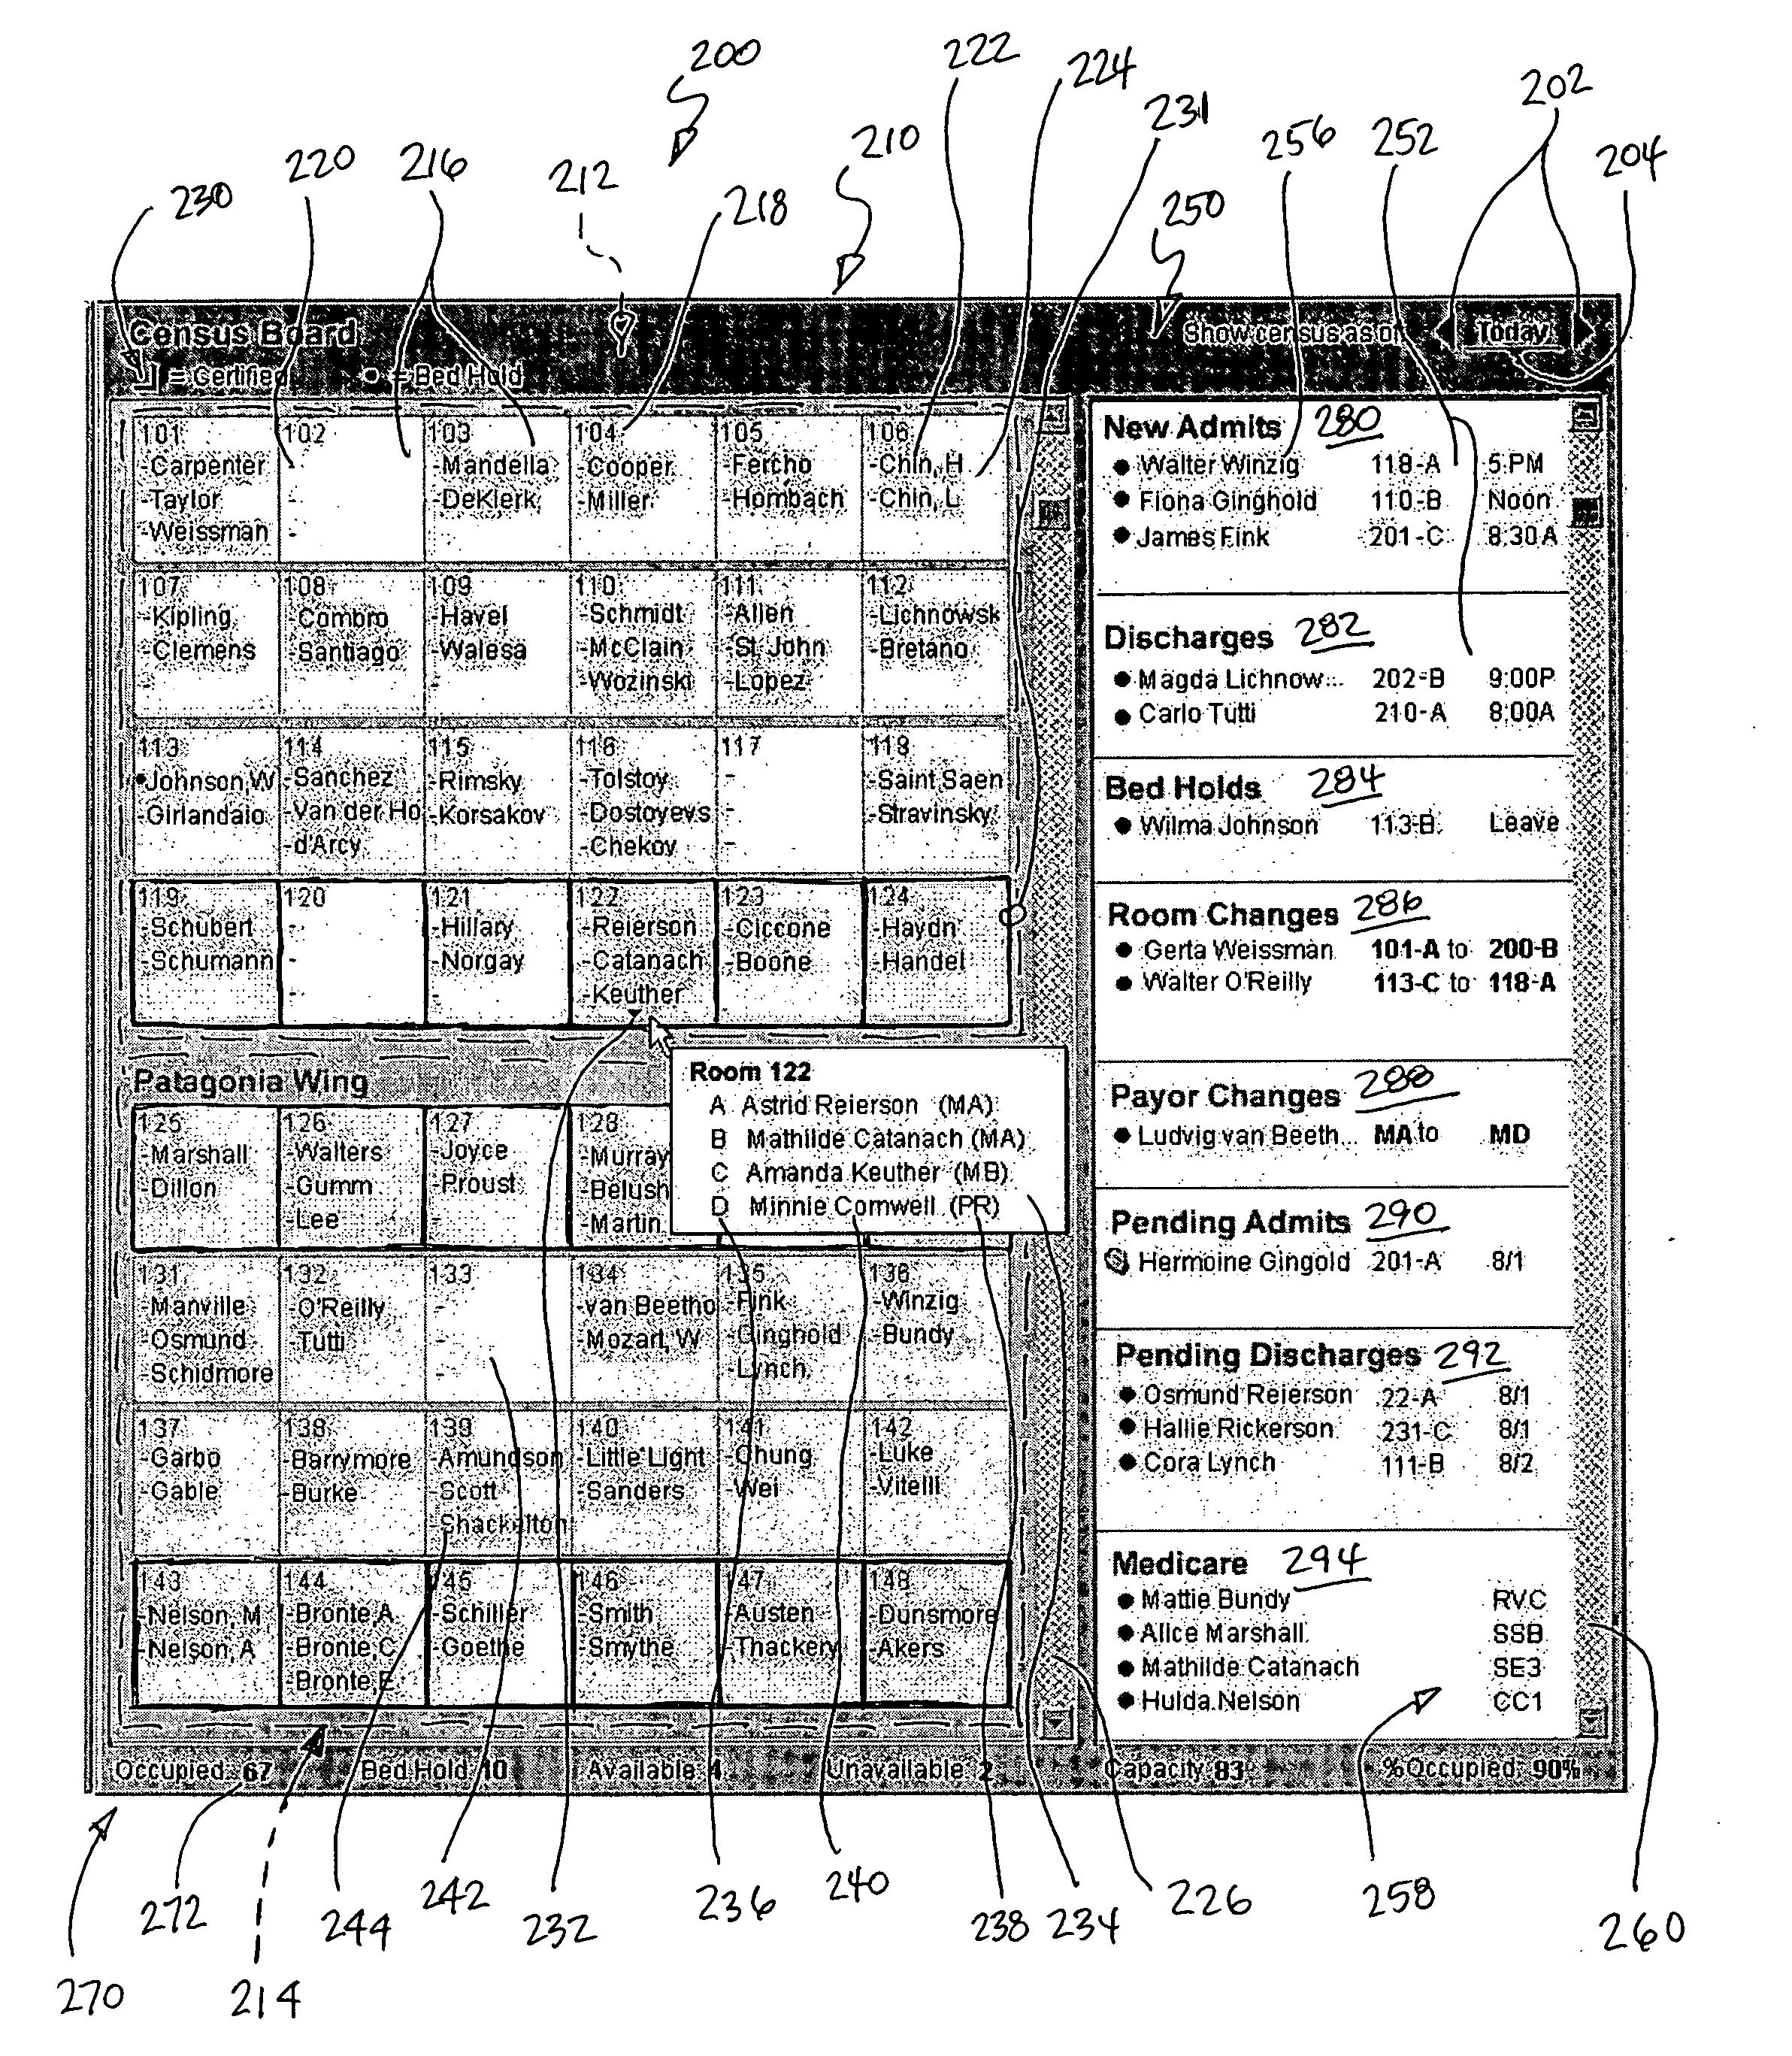 200
222
224
202
231
256
252
210
204
220
216
212
218
250
230
Census Board
Show census as of
Today
= Certified
• = Bed Hold
101
-Carpenter
-Taylor
-Weissman
102
-
-
-
103
-Mandella
-DeKlerk
-
104
-Cooper
-Miller
105
-Fercho
-Hombach
106
-Chin, H
-Chin, L
107
-Kipling
-Clemens
-
108
-Combro
-Santiago
109
-Havel
-Walesa
-
110
-Schmidt
-McClain
-Wozinski
111
-Allen
-St. John
-Lopez
112
-Lichnowsk
-Bretano
113
•Johnson,W
-Girlandaio
114
-Sanchez
-Van der Ho
-d'Arcy
115
-Rimsky
-Korsakov
116
-Tolstoy
-Dostoyevs
-Chekov
117
-
-
-
118
-Saint Saen
-Stravinsky
119
-Schubert
-Schumann
120
-
-
-
121
-Hillary
-Norgay
-
122
-Reierson
-Catanach
-Keuther
123
-Ciccone
-Boone
124
-Haydn
-Handel
Room 122
A Astrid Reierson (MA)
B Mathilde Catanach (MA)
C Amanda Keuther (MB)
D Minnie Cornwell (PR)
Patagonia Wing
125
-Marshall
-Dillon
126
-Walters
-Gumm
-Lee
127
-Joyce
-Proust
-
128
-Murray
-Belush
-Martin
131
-Manville
-Osmund
-Schidmore
132
-O'Reilly
-Tutti
133
-
-
-
134
-van Beetho
-Mozart, W
135
-Fink
-Ginghold
-Lynch
136
-Winzig
-Bundy
137
-Garbo
-Gable
138
-Barrymore
-Burke
139
-Amundson
-Scott
-Shackelton
140
-Little Light
-Sanders
141
-Chung
-Wei
142
-Luke
-Vitelli
143
-Nelson, M
-Nelson, A
144
-Bronte,A
-Bronte,C
-Bronte,E
145
-Schiller
-Goethe
146
-Smith
-Smythe
147
-Austen
-Thackery
148
-Dunsmore
-Akers
New Admits 280
• Walter Winzig 118-A 5 PM
• Fiona Ginghold 110-B Noon
• James Fink 201-C 8:30A
Discharges 282
• Magda Lichnow... 202-B 9:00P
• Carlo Tutti 210-A 8:00A
Bed Holds 284
• Wilma Johnson 113-B Leave
Room Changes 286
• Gerta Weissman 101-A to 200-B
• Walter O'Reilly 113-C to 118-A
Payor Changes 288
• Ludvig van Beeth... MA to MD
Pending Admits 290
Hermoine Gingold 201-A 8/1
Pending Discharges 292
• Osmund Reierson 22-A 8/1
• Hallie Rickerson 231-C 8/1
• Cora Lynch 111-B 8/2
Medicare 294
• Mattie Bundy RVC
• Alice Marshall SSB
• Mathilde Catanach SE3
• Hulda Nelson CC1
Occupied: 67 Bed Hold 10 Available 4 Unavailable 2 Capacity 83 %Occupied: 90%
272
244
242
232
236
240
238
234
226
258
260
270
214